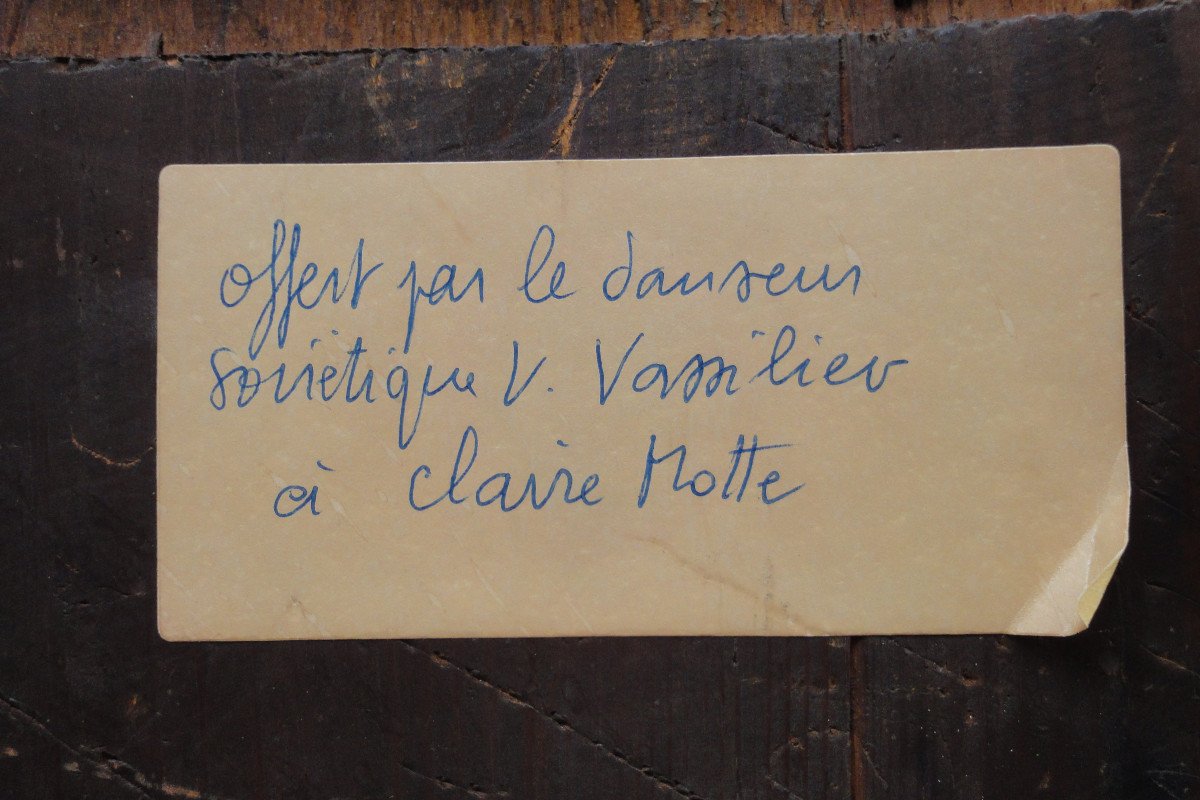 offert par le danseur
soviétique V. Vassiliev
à Claire Motte